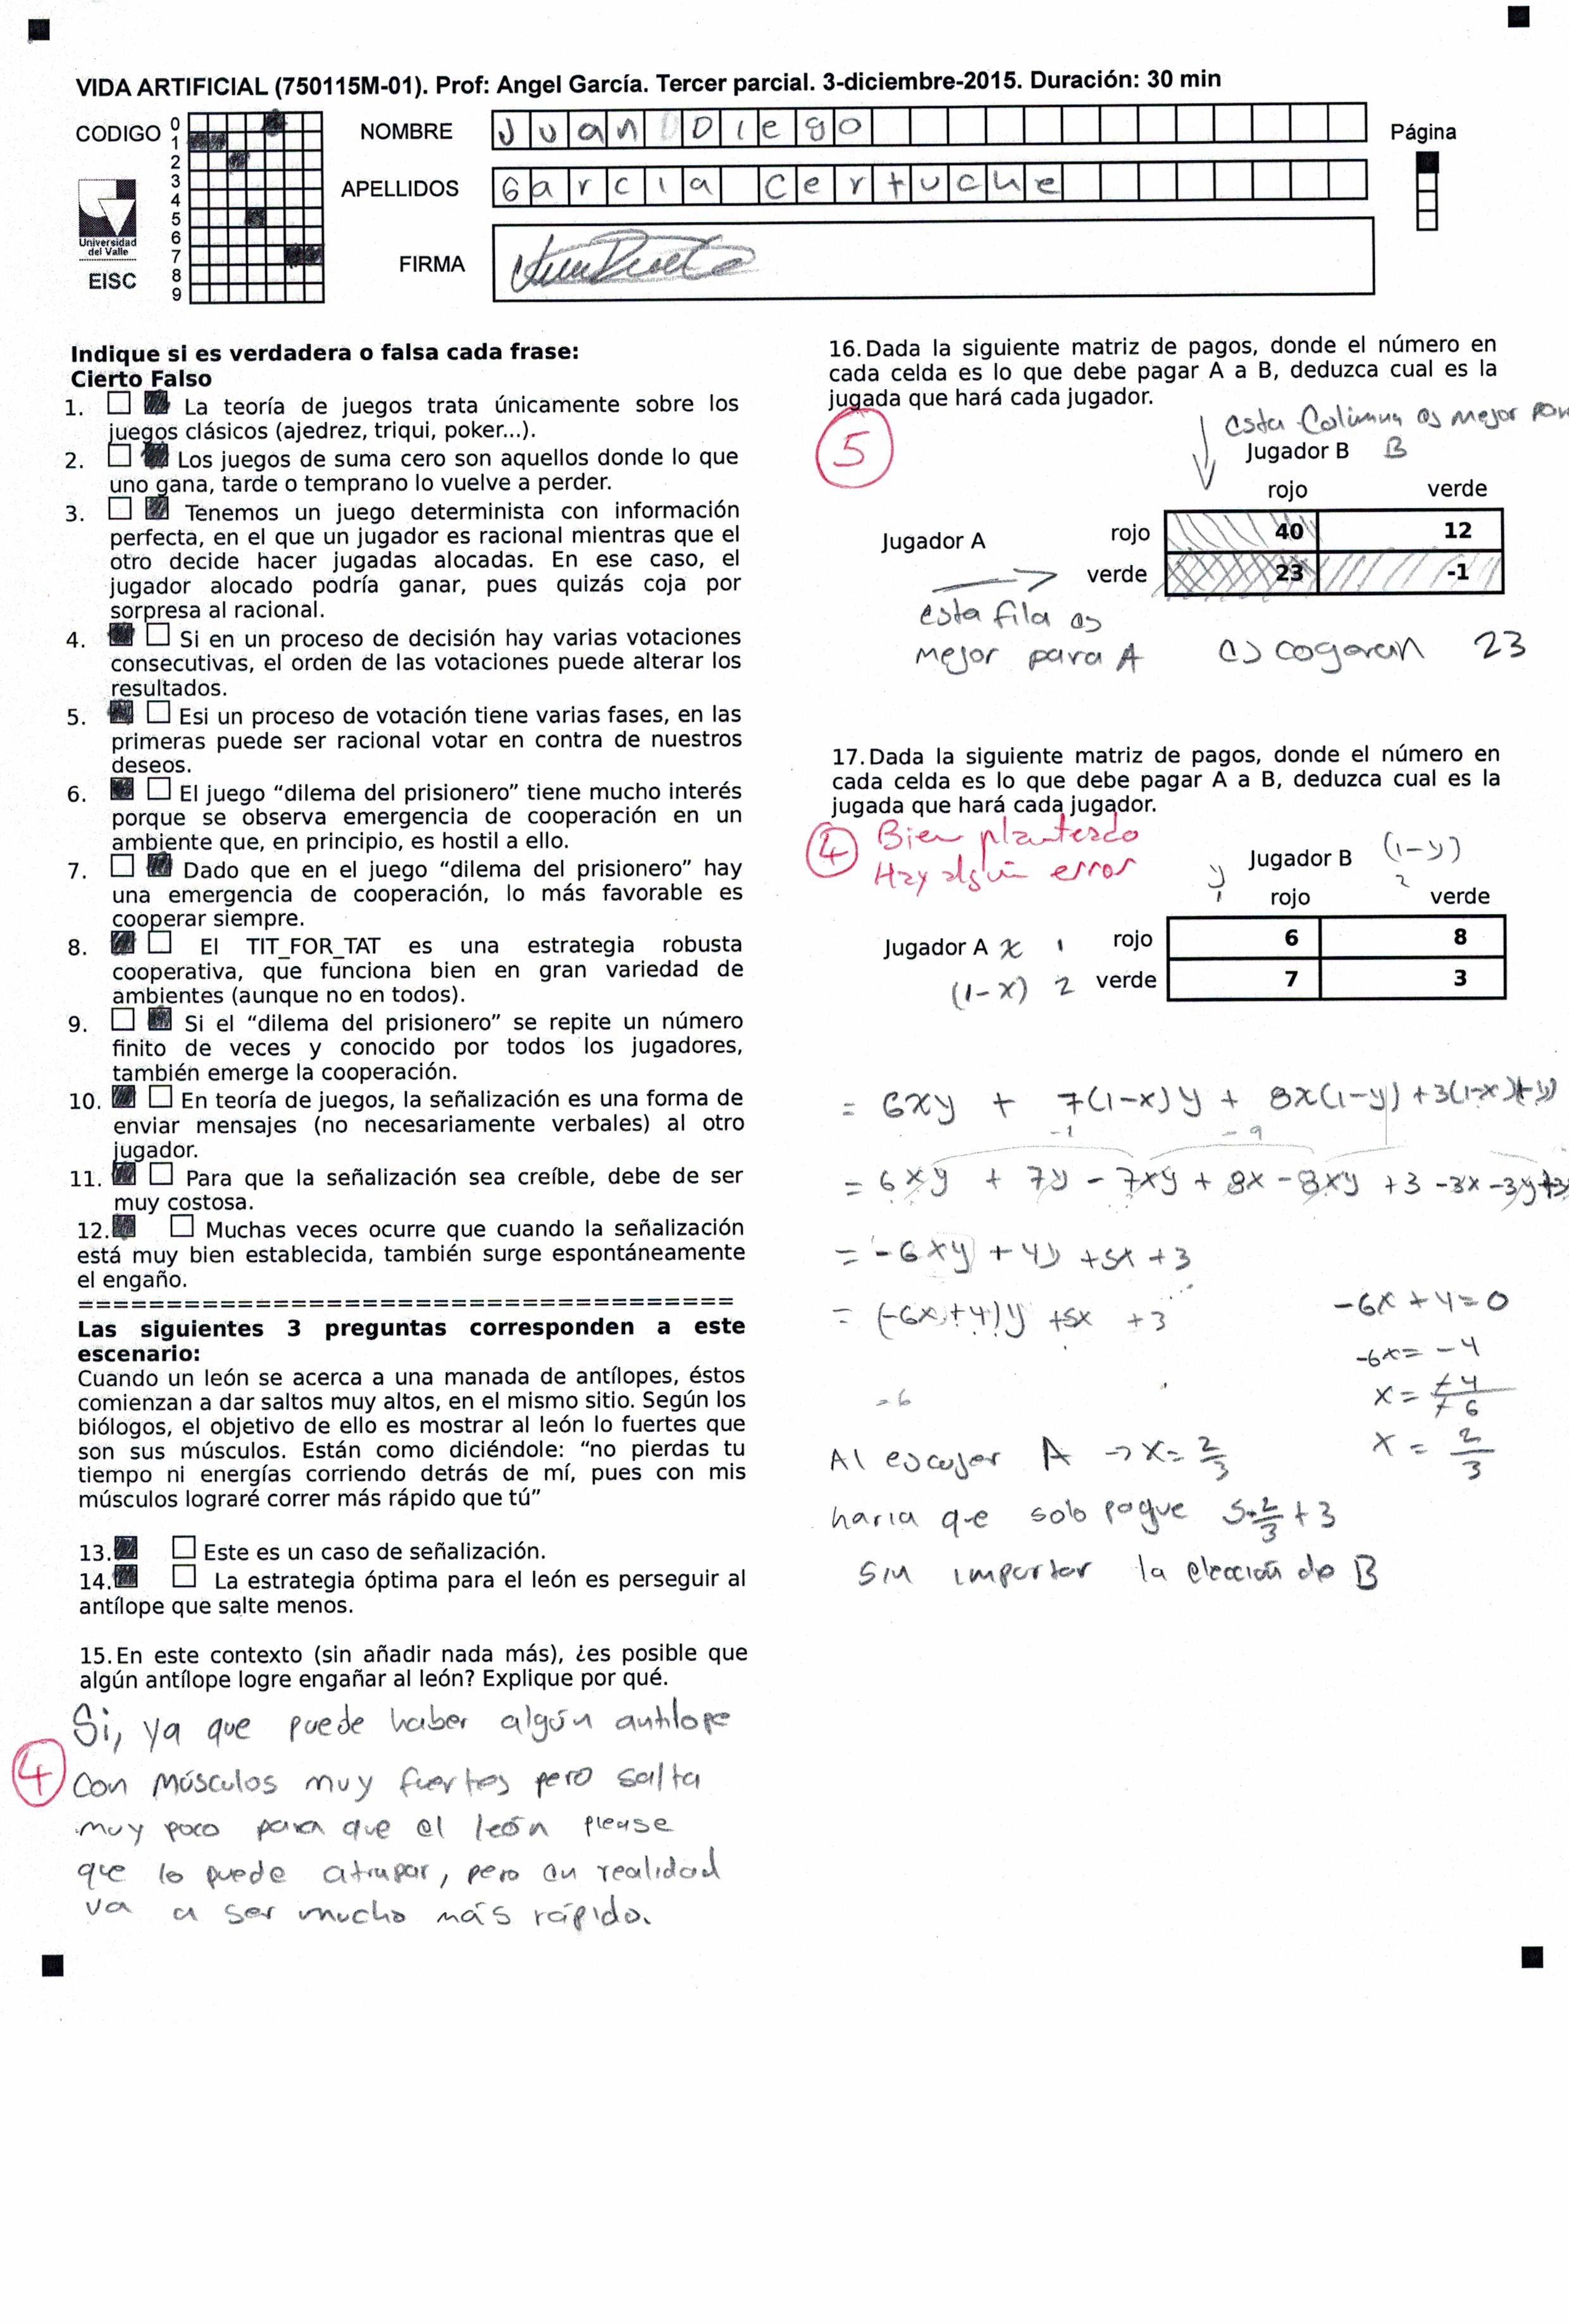 VIDA ARTIFICIAL (750115M-01). Prof: Angel García. Tercer parcial. 3-diciembre-2015. Duración: 30 min
CODIGO
0
1
2
3
4
5
6
7
8
9
Universidad
del Valle
EISC
NOMBRE
Juan Diego
APELLIDOS
Garcia Certuche
FIRMA
Página
Indique si es verdadera o falsa cada frase:
Cierto Falso
1. La teoría de juegos trata únicamente sobre los
juegos clásicos (ajedrez, triqui, poker...).
2. Los juegos de suma cero son aquellos donde lo que
uno gana, tarde o temprano lo vuelve a perder.
3. Tenemos un juego determinista con información
perfecta, en el que un jugador es racional mientras que el
otro decide hacer jugadas alocadas. En ese caso, el
jugador alocado podría ganar, pues quizás coja por
sorpresa al racional.
4. Si en un proceso de decisión hay varias votaciones
consecutivas, el orden de las votaciones puede alterar los
resultados.
5. Esi un proceso de votación tiene varias fases, en las
primeras puede ser racional votar en contra de nuestros
deseos.
6. El juego “dilema del prisionero” tiene mucho interés
porque se observa emergencia de cooperación en un
ambiente que, en principio, es hostil a ello.
7. Dado que en el juego “dilema del prisionero” hay
una emergencia de cooperación, lo más favorable es
cooperar siempre.
8. El TIT_FOR_TAT es una estrategia robusta
cooperativa, que funciona bien en gran variedad de
ambientes (aunque no en todos).
9. Si el “dilema del prisionero” se repite un número
finito de veces y conocido por todos los jugadores,
también emerge la cooperación.
10. En teoría de juegos, la señalización es una forma de
enviar mensajes (no necesariamente verbales) al otro
jugador.
11. Para que la señalización sea creíble, debe de ser
muy costosa.
12. Muchas veces ocurre que cuando la señalización
está muy bien establecida, también surge espontáneamente
el engaño.
=====================================
Las siguientes 3 preguntas corresponden a este
escenario:
Cuando un león se acerca a una manada de antílopes, éstos
comienzan a dar saltos muy altos, en el mismo sitio. Según los
biólogos, el objetivo de ello es mostrar al león lo fuertes que
son sus músculos. Están como diciéndole: “no pierdas tu
tiempo ni energías corriendo detrás de mí, pues con mis
músculos lograré correr más rápido que tú”
13. Este es un caso de señalización.
14. La estrategia óptima para el león es perseguir al
antílope que salte menos.
15. En este contexto (sin añadir nada más), ¿es posible que
algún antílope logre engañar al león? Explique por qué.
Si, ya que puede haber algún antilope
4
con músculos muy fuertes pero salta
muy poco para que el león piense
que lo puede atrapar, pero en realidad
va a ser mucho más rápido.
16. Dada la siguiente matriz de pagos, donde el número en
cada celda es lo que debe pagar A a B, deduzca cual es la
jugada que hará cada jugador.
5
esta Columna es mejor para
Jugador B B
rojo verde
Jugador A rojo 40 12
verde 23 -1
esta fila es
mejor para A
escogeran 23
17. Dada la siguiente matriz de pagos, donde el número en
cada celda es lo que debe pagar A a B, deduzca cual es la
jugada que hará cada jugador.
4 Bien planteado
Hay algún error
Jugador B (1-y)
y 1 rojo 2 verde
Jugador A x 1 rojo 6 8
(1-x) 2 verde 7 3
= 6xy + 7(1-x)y + 8x(1-y) + 3(1-x)(1-y)
-1 -9
= 6xy + 7y - 7xy + 8x - 8xy + 3 - 3x - 3y + 3
= -6xy + 4y + 5x + 3
= (-6x+4)y + 5x + 3
-6x + 4 = 0
-6x = -4
= 6
x = -4/-6
x = 2/3
Al escojer A → x = 2/3
haria que solo pague 5·2/3 + 3
sin importar la elección de B